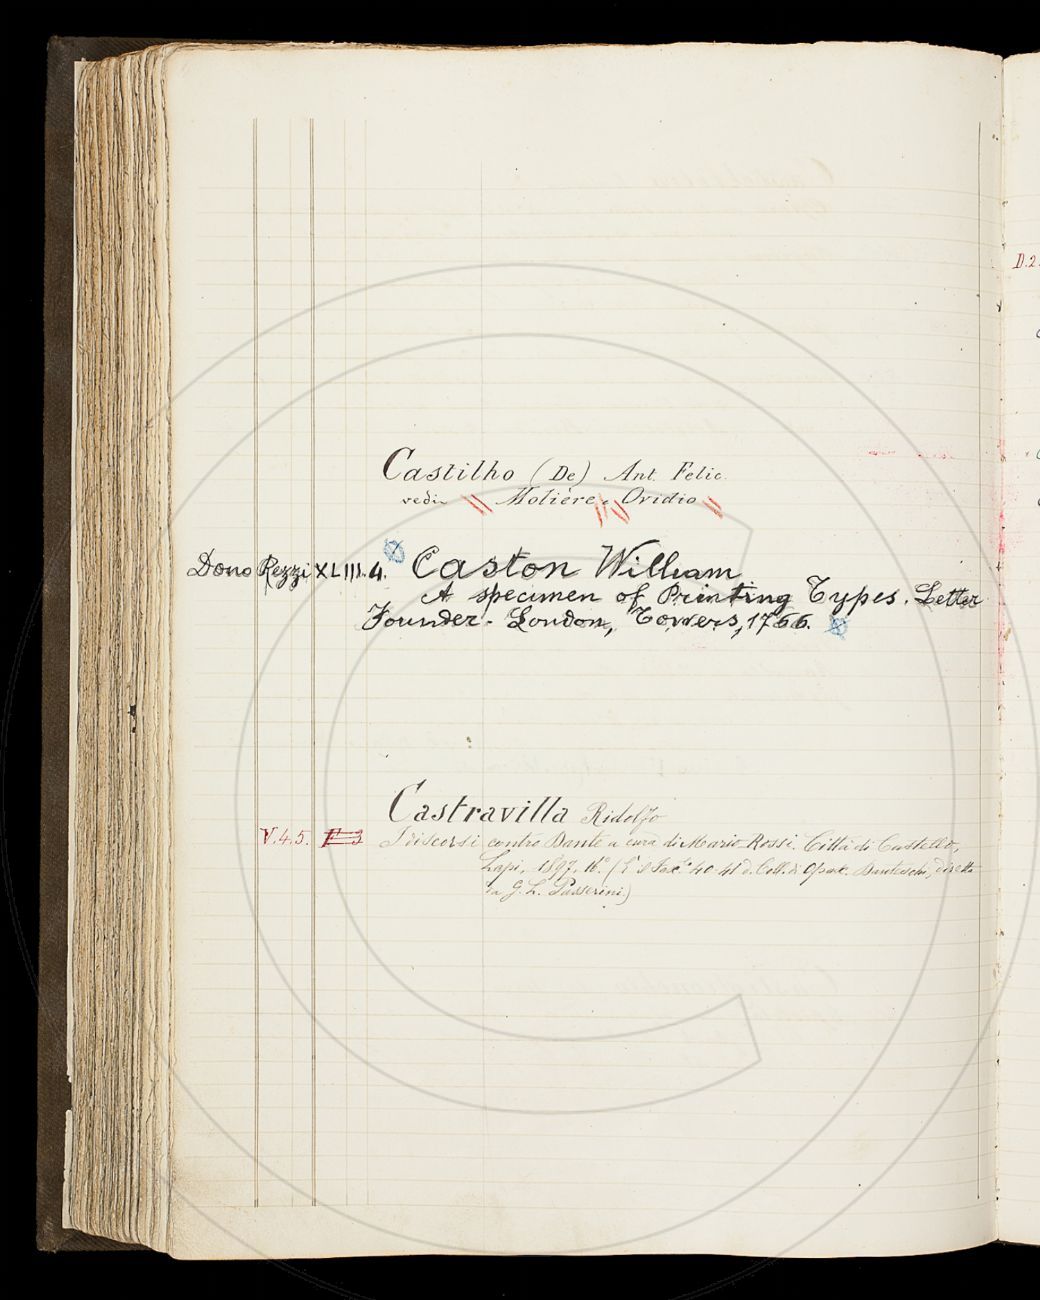 D.2.
Castilho (De) Ant. Felic.
vedi Molière, Ovidio
Dono Rezzi XLIII.4. Caston William
A specimen of Printing Types. Letter
Founder - London, Towers, 1766.
Castravilla Ridolfo
V.4.5. I discorsi contro Dante a cura di Mario Rossi. Città di Castello,
Lapi, 1897, 16.° (È il fasc.° 40-41 d. Coll. di Opusc. Danteschi, diretta
da G. L. Passerini)